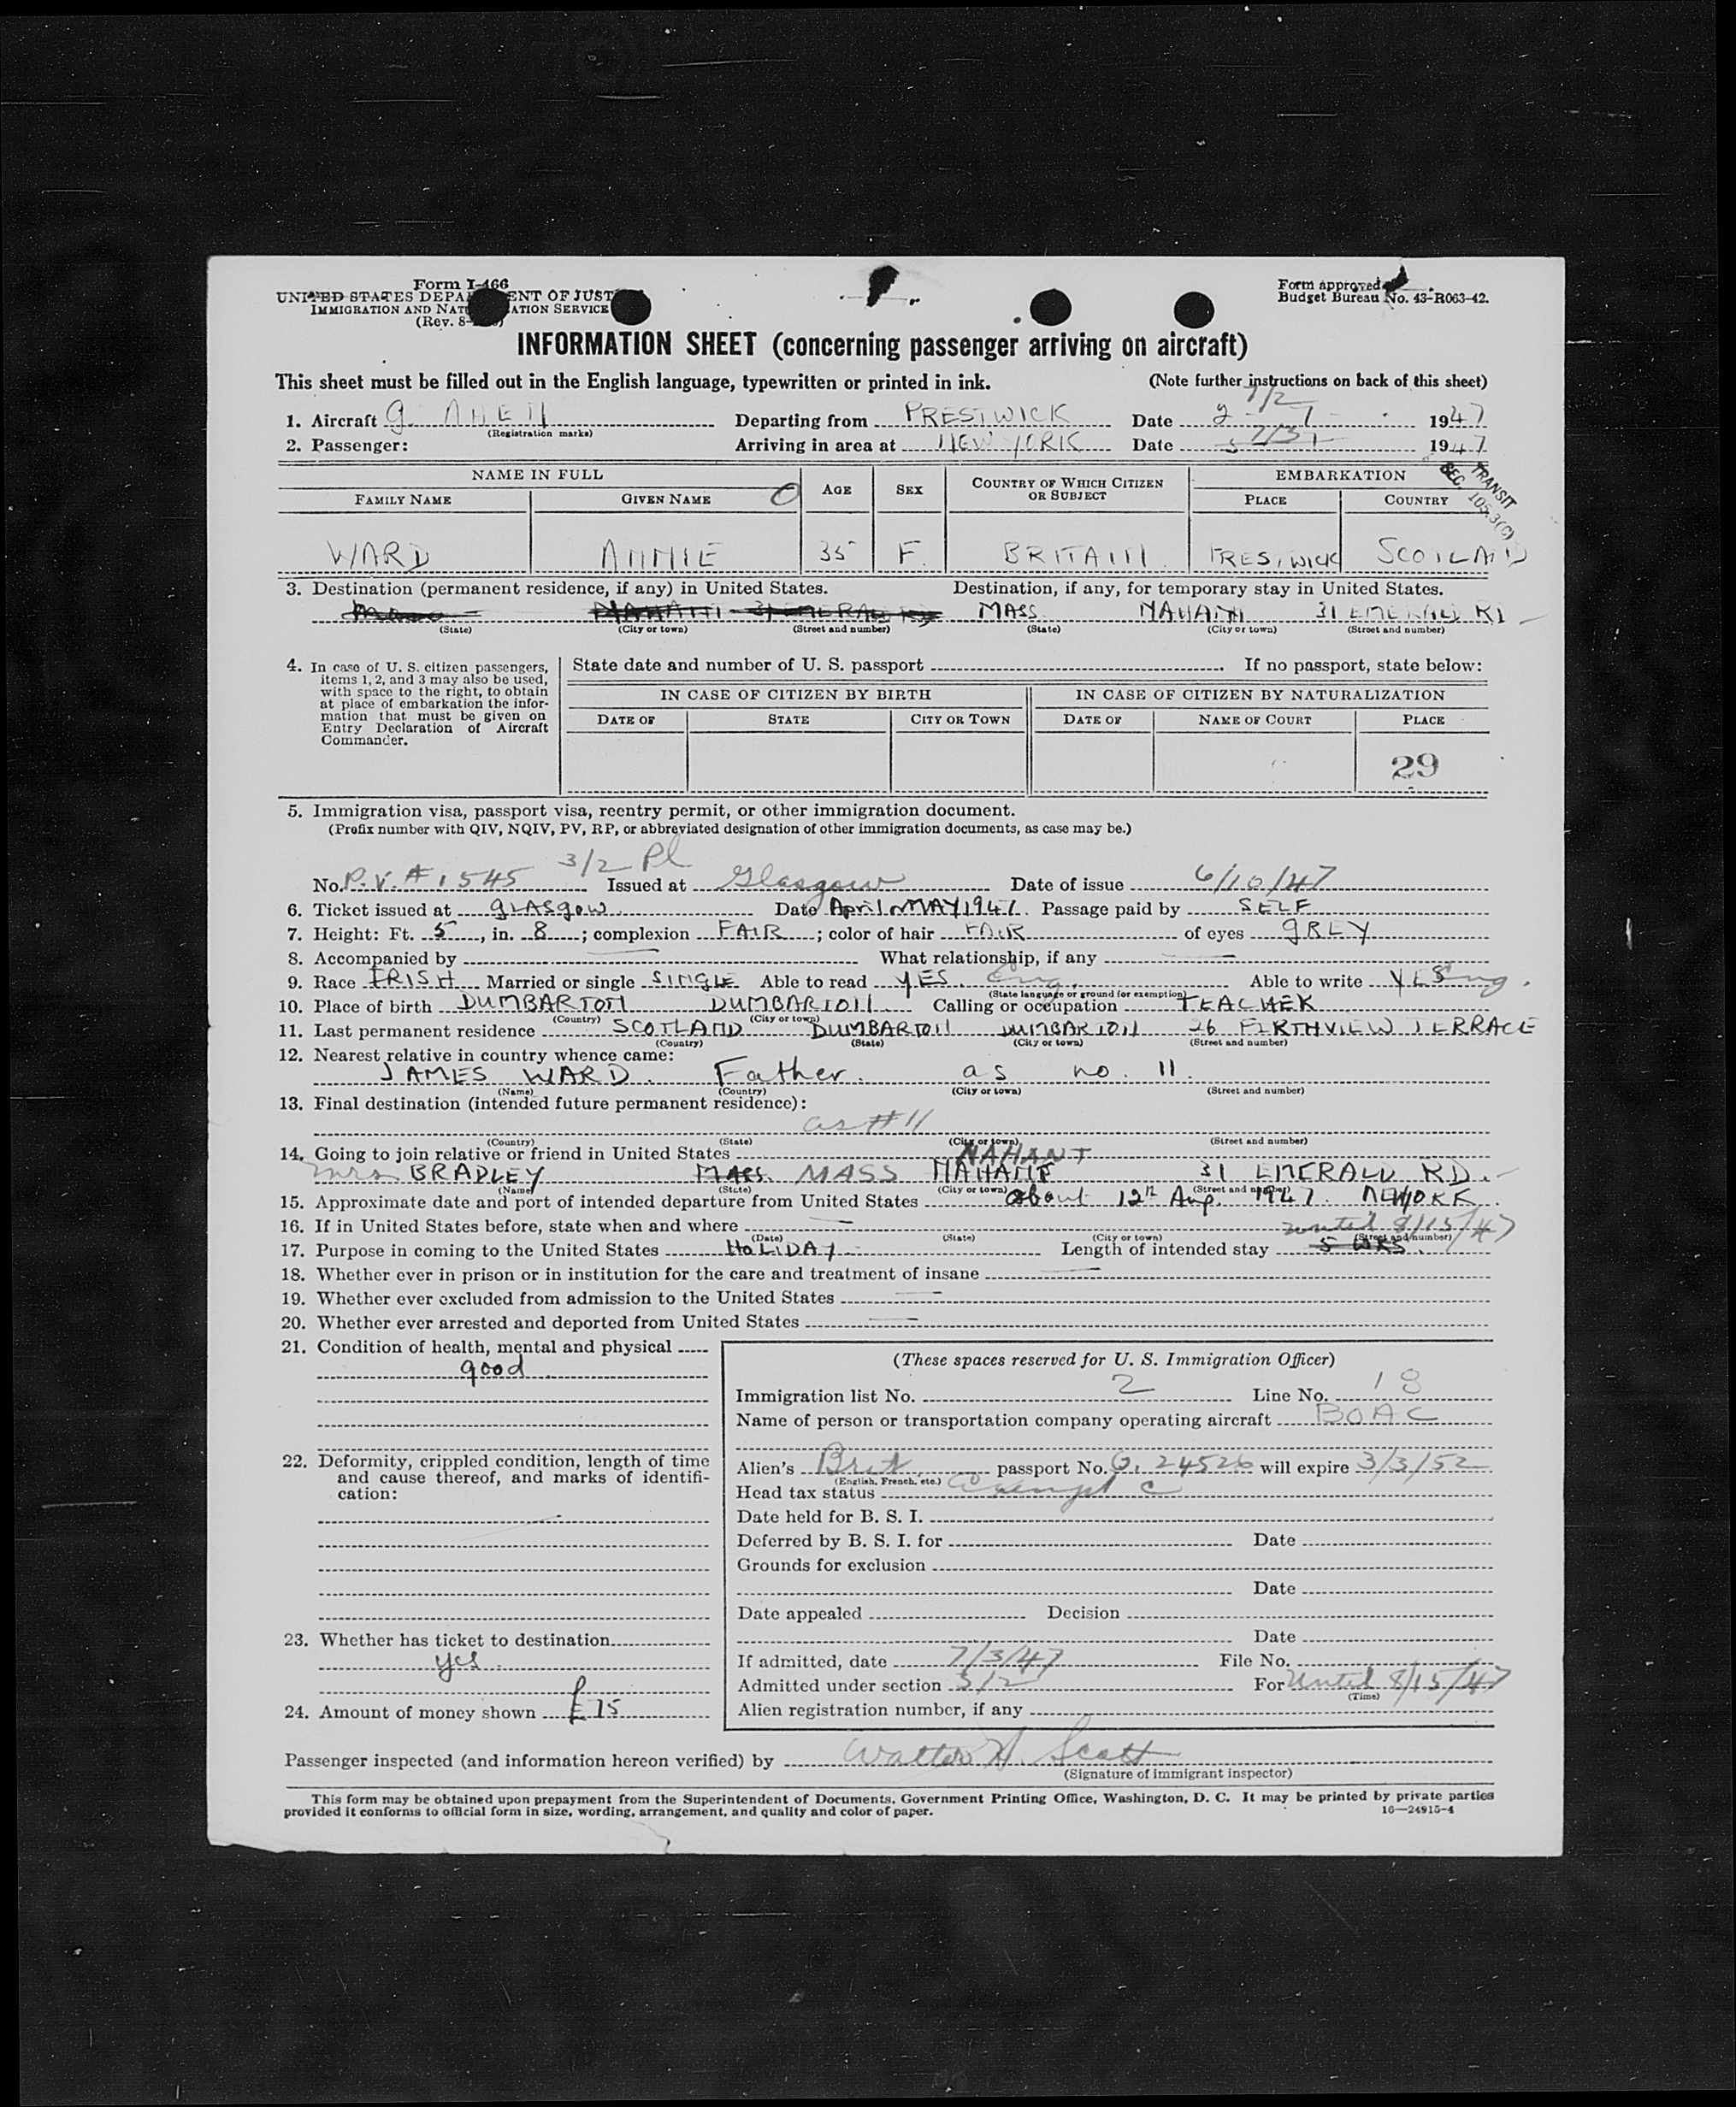 Form I-466
UNITED STATES DEPA ENT OF JUST
IMMIGRATION AND NAT ATION SERVICE
(Rev. 8-
Form approved
Budget Bureau No. 43-R063-42.
INFORMATION SHEET (concerning passenger arriving on aircraft)
This sheet must be filled out in the English language, typewritten or printed in ink. (Note further instructions on back of this sheet)
7/2
1. Aircraft G. AHEN Departing from PRESTWICK Date 2 - 7 - 1947
(Registration marks)
2. Passenger: Arriving in area at NEW YORK Date 7/3 1947
TRANSIT
SEC. 105.3(C)
NAME IN FULL AGE SEX COUNTRY OF WHICH CITIZEN OR SUBJECT EMBARKATION
FAMILY NAME GIVEN NAME PLACE COUNTRY
WARD ANNIE 35 F. BRITAIN PRESTWICK SCOTLAND
3. Destination (permanent residence, if any) in United States. Destination, if any, for temporary stay in United States.
NAHANT 31 EMERALD RD MASS. NAHANT 31 EMERALD RD
(State) (City or town) (Street and number) (State) (City or town) (Street and number)
4. In case of U. S. citizen passengers, items 1, 2, and 3 may also be used, with space to the right, to obtain at place of embarkation the information that must be given on Entry Declaration of Aircraft Commander.
State date and number of U. S. passport If no passport, state below:
IN CASE OF CITIZEN BY BIRTH IN CASE OF CITIZEN BY NATURALIZATION
DATE OF STATE CITY OR TOWN DATE OF NAME OF COURT PLACE
29
5. Immigration visa, passport visa, reentry permit, or other immigration document.
(Prefix number with QIV, NQIV, PV, RP, or abbreviated designation of other immigration documents, as case may be.)
3/2 Pl
No. P.V. # 1545 Issued at Glasgow Date of issue 6/10/47
6. Ticket issued at GLASGOW Date April or MAY 1947. Passage paid by SELF
7. Height: Ft. 5, in. 8; complexion FAIR; color of hair FAIR of eyes GREY
8. Accompanied by What relationship, if any
9. Race IRISH Married or single SINGLE Able to read YES. Eng. Able to write YES Eng.
(State language or ground for exemption)
10. Place of birth DUMBARTON DUMBARTON Calling or occupation TEACHER
(Country) (City or town)
11. Last permanent residence SCOTLAND DUMBARTON DUMBARTON 26 FIRTHVIEW TERRACE
(Country) (State) (City or town) (Street and number)
12. Nearest relative in country whence came:
JAMES WARD. Father. as no. 11.
(Name) (Country) (City or town) (Street and number)
13. Final destination (intended future permanent residence):
as # 11
(Country) (State) (City or town) (Street and number)
14. Going to join relative or friend in United States NAHANT
Mrs BRADLEY MASS. MASS NAHANT 31 EMERALD RD.
(Name) (State) (City or town) (Street and number)
15. Approximate date and port of intended departure from United States about 12th Aug. 1947. NEWYORK.
16. If in United States before, state when and where
until 8/15/47
(Date) (State) (City or town) (Street and number)
17. Purpose in coming to the United States HOLIDAY Length of intended stay 5 WKS.
18. Whether ever in prison or in institution for the care and treatment of insane
19. Whether ever excluded from admission to the United States
20. Whether ever arrested and deported from United States
21. Condition of health, mental and physical
good
22. Deformity, crippled condition, length of time and cause thereof, and marks of identification:
23. Whether has ticket to destination
yes
24. Amount of money shown £15
(These spaces reserved for U. S. Immigration Officer)
Immigration list No. 2 Line No. 18
Name of person or transportation company operating aircraft BOAC
Alien's Brit passport No. O. 24526 will expire 3/3/52
(English, French, etc.)
Head tax status exempt C
Date held for B. S. I.
Deferred by B. S. I. for Date
Grounds for exclusion
Date
Date appealed Decision
Date
If admitted, date 7/3/47 File No.
Admitted under section 3/2 For Until 8/15/47
(Time)
Alien registration number, if any
Passenger inspected (and information hereon verified) by Walter H. Scott
(Signature of immigrant inspector)
This form may be obtained upon prepayment from the Superintendent of Documents, Government Printing Office, Washington, D. C. It may be printed by private parties
provided it conforms to official form in size, wording, arrangement, and quality and color of paper. 16—24915-4